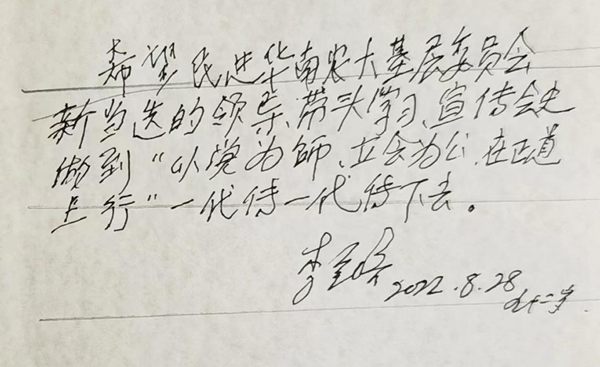 希望民进华南农大基层委员会
新当选的领导、带头学习、宣传会史
做到“以党为师、立会为公、在正道
上行”一代传一代传下去。
李 2022.8.28
十二岁